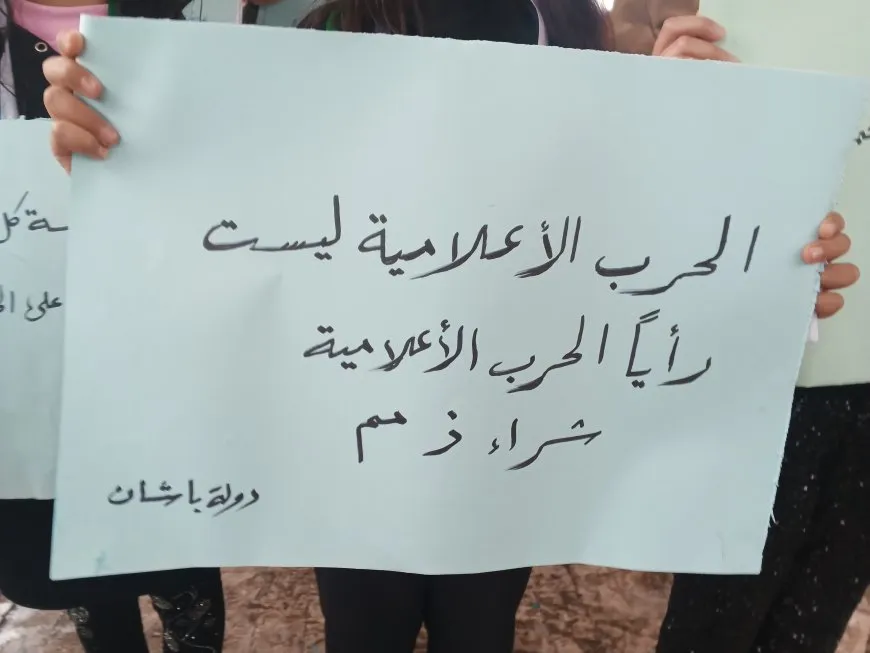 الحرب الأعلامية ليست
رأياً الحرب الأعلامية
شراء ذمم
دولة باشان
سة كل
على ال